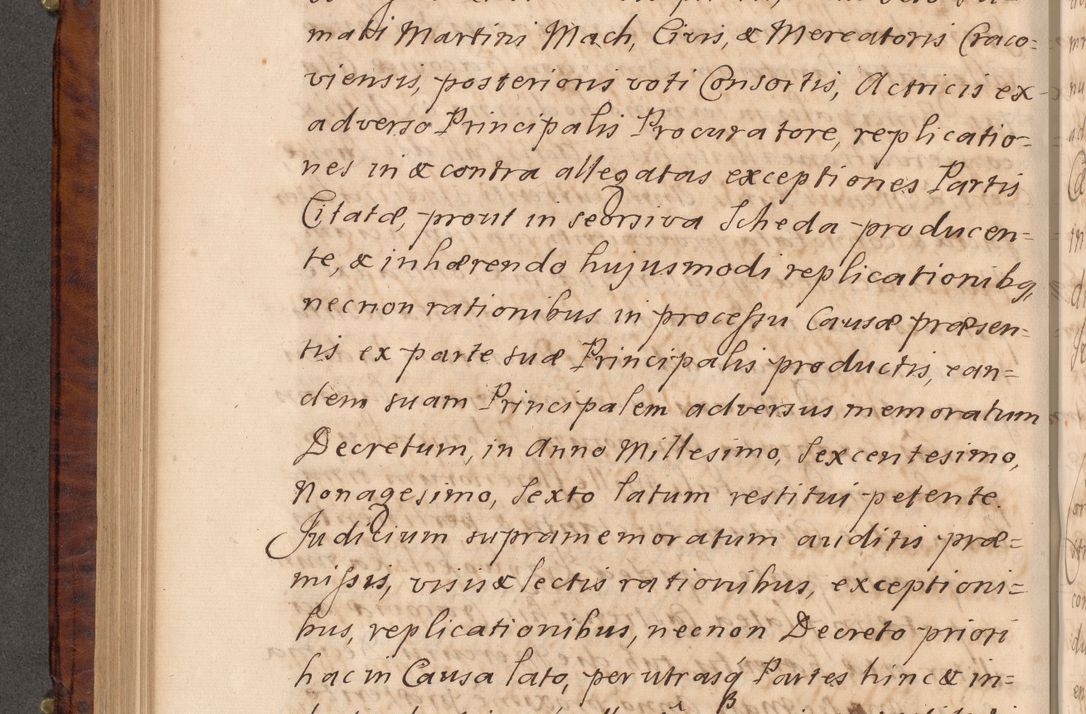 mati Martini Mach, Civis, & Mercatoris Craco=
viensis, posterioris voti Consortis, Actricis ex
adverso Principalis Procuratore, replicatio-
nes in & contra allegatas exceptiones Partis
Citatæ, prout in seorsiva Scheda producen=
te, & inhærendo hujusmodi replicationibq,
necnon rationibus in processu Causæ præsen=
tis ex parte suæ Principalis productis, ean=
dem suam Principalem adversus memoratum
Decretum, in Anno Millesimo, Sexcentesimo,
Nonagesimo, Sexto latum restitui petente.
Judicium supramemoratum auditis præ=
missis, visis & lectis rationibus, exceptioni=
bus, replicationibus, necnon Decreto priori
hac in Causa lato, per utrasq Partes hinc & in=